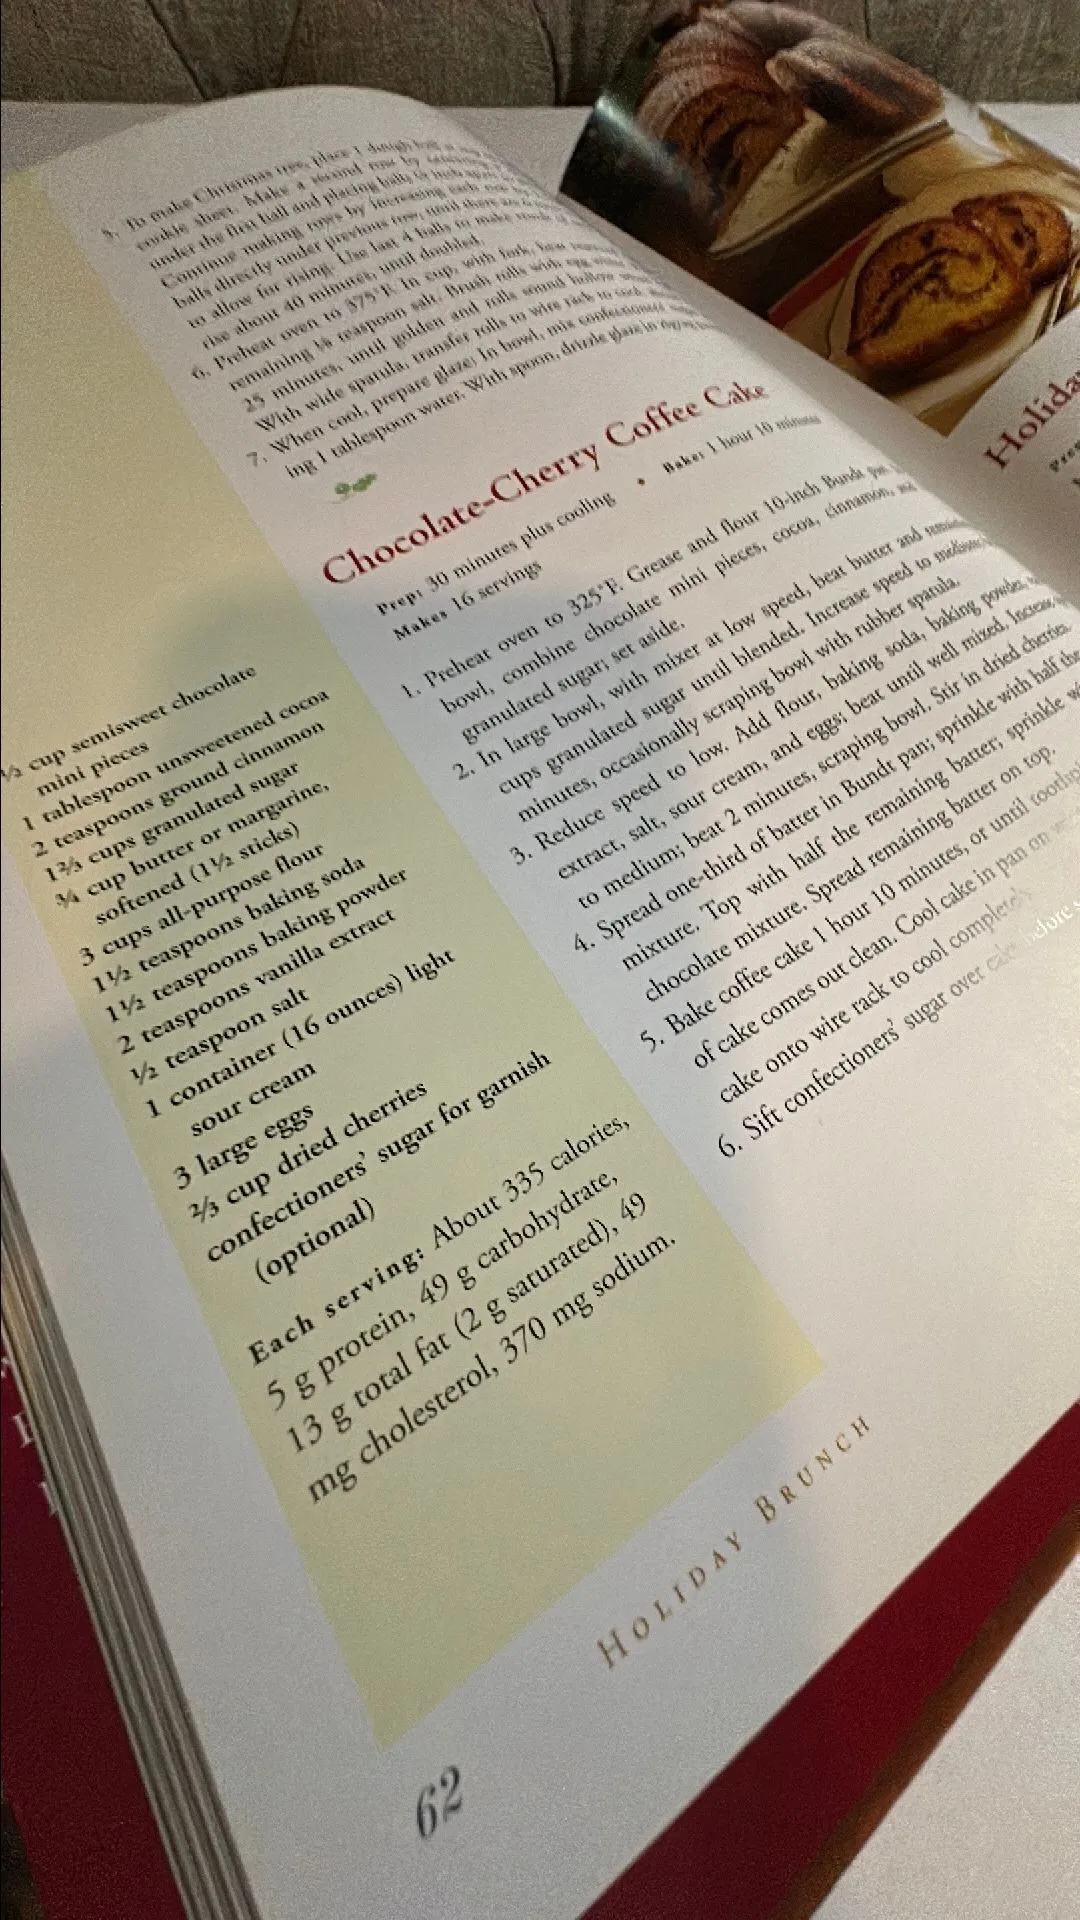 5. To make Christmas tree, place 1 dough ball at
cookie sheet. Make a second row by
under the first ball and placing balls ¼ inch
Continue making rows by increasing each row by
balls directly under previous row, until there are
to allow for rising. Use last 4 balls to make
rise about 40 minutes, until doubled.
6. Preheat oven to 375°F. In cup, with fork, beat
remaining teaspoon salt. Brush rolls with egg
25 minutes, until golden and rolls sound hollow
With wide spatula, transfer rolls to wire rack to cool
7. When cool, prepare glaze: In bowl, mix confectioners'
ing 1 tablespoon water. With spoon, drizzle glaze in
Chocolate-Cherry Coffee Cake
Prep: 30 minutes plus cooling • Bake: 1 hour 10 minutes
Makes 16 servings
1. Preheat oven to 325°F. Grease and flour 10-inch Bundt pan.
bowl, combine chocolate mini pieces, cocoa, cinnamon, and
granulated sugar; set aside.
2. In large bowl, with mixer at low speed, beat butter and
cups granulated sugar until blended. Increase speed to
minutes, occasionally scraping bowl with rubber spatula.
3. Reduce speed to low. Add flour, baking soda, baking powder,
extract, salt, sour cream, and eggs; beat until well mixed. Increase
to medium; beat 2 minutes, scraping bowl. Stir in dried cherries.
4. Spread one-third of batter in Bundt pan; sprinkle with half the
mixture. Top with half the remaining batter; sprinkle
chocolate mixture. Spread remaining batter on top.
5. Bake coffee cake 1 hour 10 minutes, or until
of cake comes out clean. Cool cake in pan on
cake onto wire rack to cool completely.
6. Sift confectioners' sugar over cake before
½ cup semisweet chocolate
mini pieces
1 tablespoon unsweetened cocoa
2 teaspoons ground cinnamon
1⅔ cups granulated sugar
¾ cup butter or margarine,
softened (1½ sticks)
3 cups all-purpose flour
1½ teaspoons baking soda
1½ teaspoons baking powder
2 teaspoons vanilla extract
½ teaspoon salt
1 container (16 ounces) light
sour cream
3 large eggs
⅔ cup dried cherries
confectioners' sugar for garnish
(optional)
Each serving: About 335 calories,
5 g protein, 49 g carbohydrate,
13 g total fat (2 g saturated), 49
mg cholesterol, 370 mg sodium.
HOLIDAY BRUNCH
62
Holiday